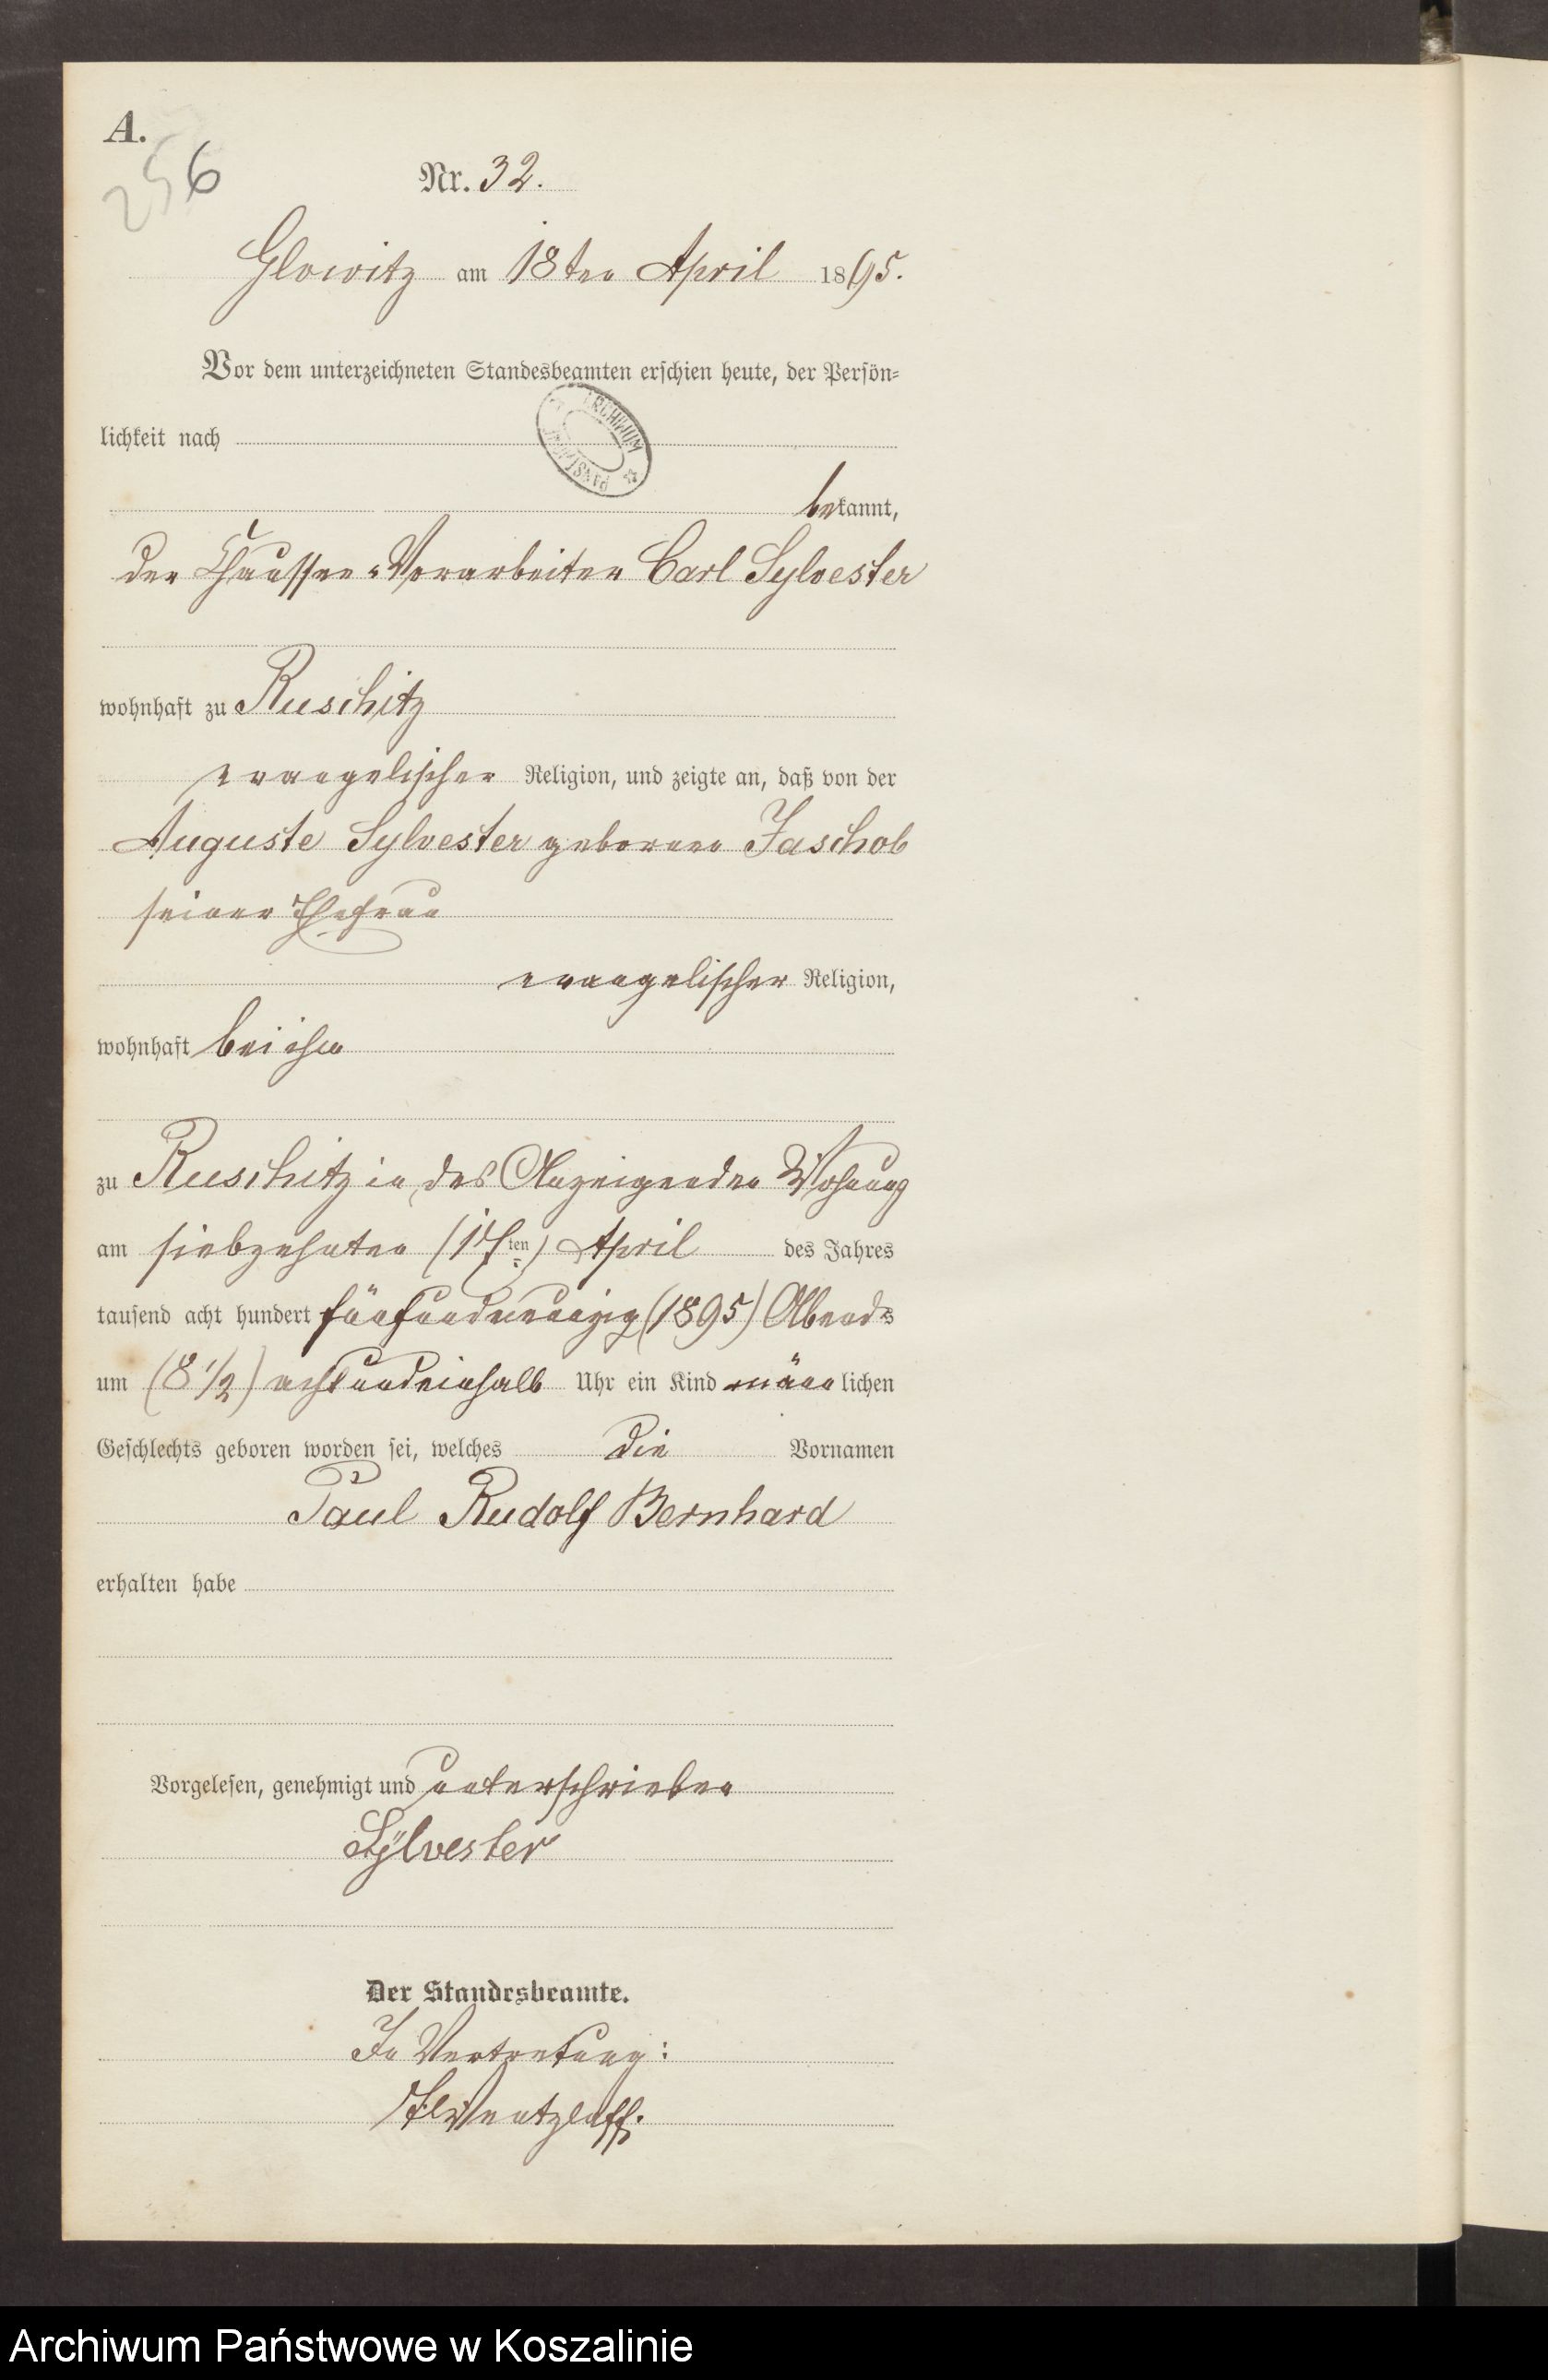 A.
256
Nr. 32.
Glowitz am 18ten April 1895.
Vor dem unterzeichneten Standesbeamten erschien heute, der Persön-
lichkeit nach
ARCHIWUM PAŃSTWOWE
bekannt,
der Chaussee-Vorarbeiter Carl Sylvester
wohnhaft zu Ruschitz
evangelischer Religion, und zeigte an, daß von der
Auguste Sylvester geborenen Jaschob
seiner Ehefrau
evangelischer Religion,
wohnhaft bei ihm
zu Ruschitz in des Anzeigenden Wohnung
am siebzehnten (17ten) April des Jahres
tausend acht hundert fünfundneunzig (1895) Abends
um (8 1/2) achtundeinhalb Uhr ein Kind männlichen
Geschlechts geboren worden sei, welches die Vornamen
Paul Rudolf Bernhard
erhalten habe
Vorgelesen, genehmigt und unterschrieben
Sylvester
Der Standesbeamte.
In Vertretung:
Wentzlaff.
Archiwum Państwowe w Koszalinie